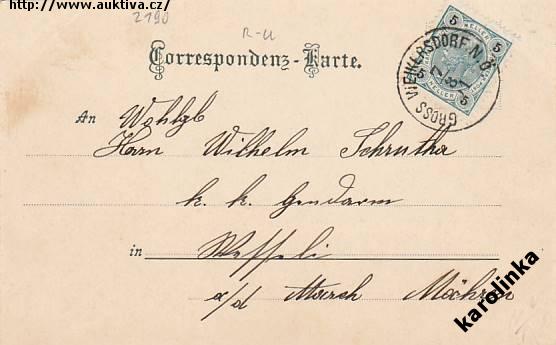 http://www.auktiva.cz/
2190
R-U
Correspondenz-Karte.
5 HELLER 5
GROSS WEIKERSDORF N.Ö.
An Wohlgb
Herrn Wilhelm Schrutka
k. k. Gendarm
in Wesseli
a/d March Mähren
karolinka